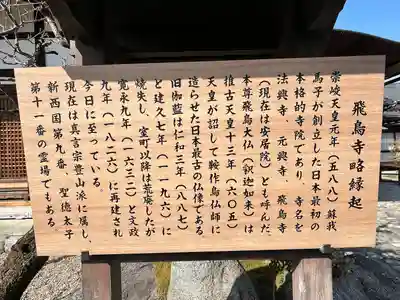 飛鳥寺略縁起
崇峻天皇元年(五八八)蘇我
馬子が創立した日本最初の
本格的寺院であり、寺名を
法興寺、元興寺、飛鳥寺
(現在は安居院)とも呼んだ、
本尊飛鳥大仏(釈迦如来)は
推古天皇十三年(六〇五)
天皇が詔して鞍作鳥仏師に
造らせた日本最古の仏像である
旧伽藍は仁和三年(八八七)
と建久七年(一一九六)に
焼失し、室町以降は荒廃したが
寛永九年(一六三二)と文政
九年(一八二六)に再建され
今日に至っている。
現在は真言宗豊山派に属し、
新西国第九番、聖徳太子
第十一番の霊場でもある